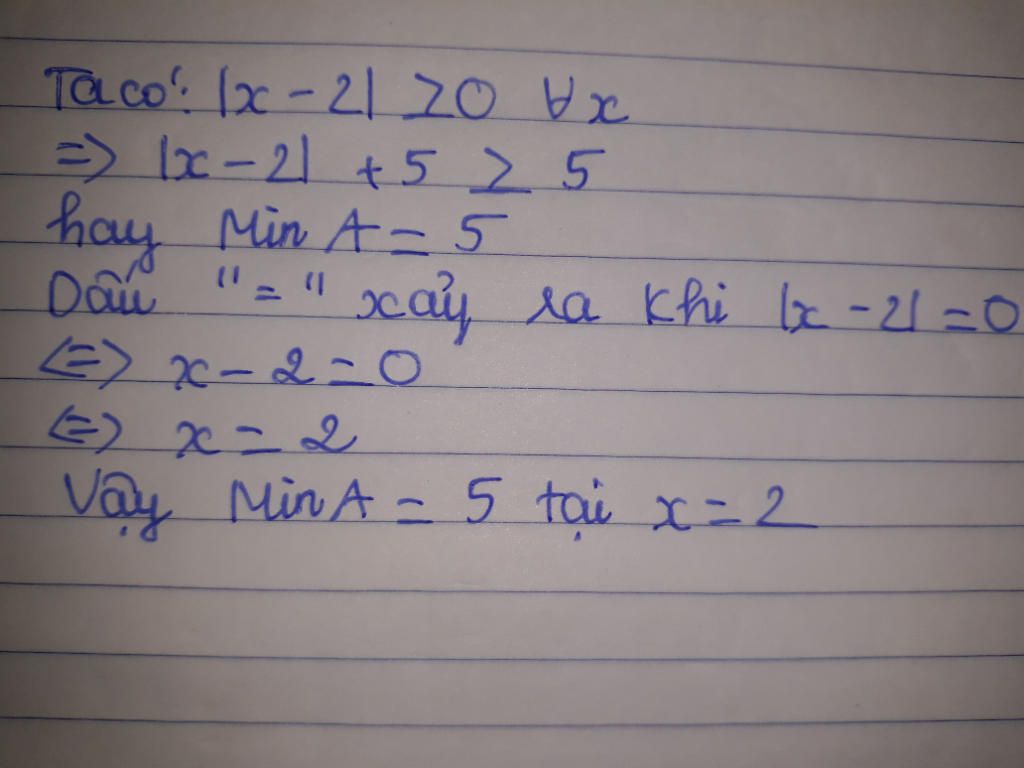 Ta có: |x - 2| ≥ 0 ∀x
=> |x - 2| + 5 ≥ 5
hay Min A = 5
Dấu "=" xảy ra khi |x - 2| = 0
<=> x - 2 = 0
<=> x = 2
Vậy Min A = 5 tại x = 2